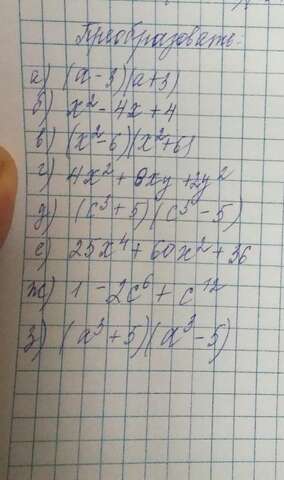 Преобразовать:
а) (a-3)(a+3)
б) x² - 4x + 4
в) (x² - 6)(x² + 6)
г) 4x² + 8xy + 2y²
д) (c³ + 5)(c³ - 5)
е) 25x⁴ + 60x² + 36
ж) 1 - 2c⁶ + c¹²
з) (a³ + 5)(a³ - 5)